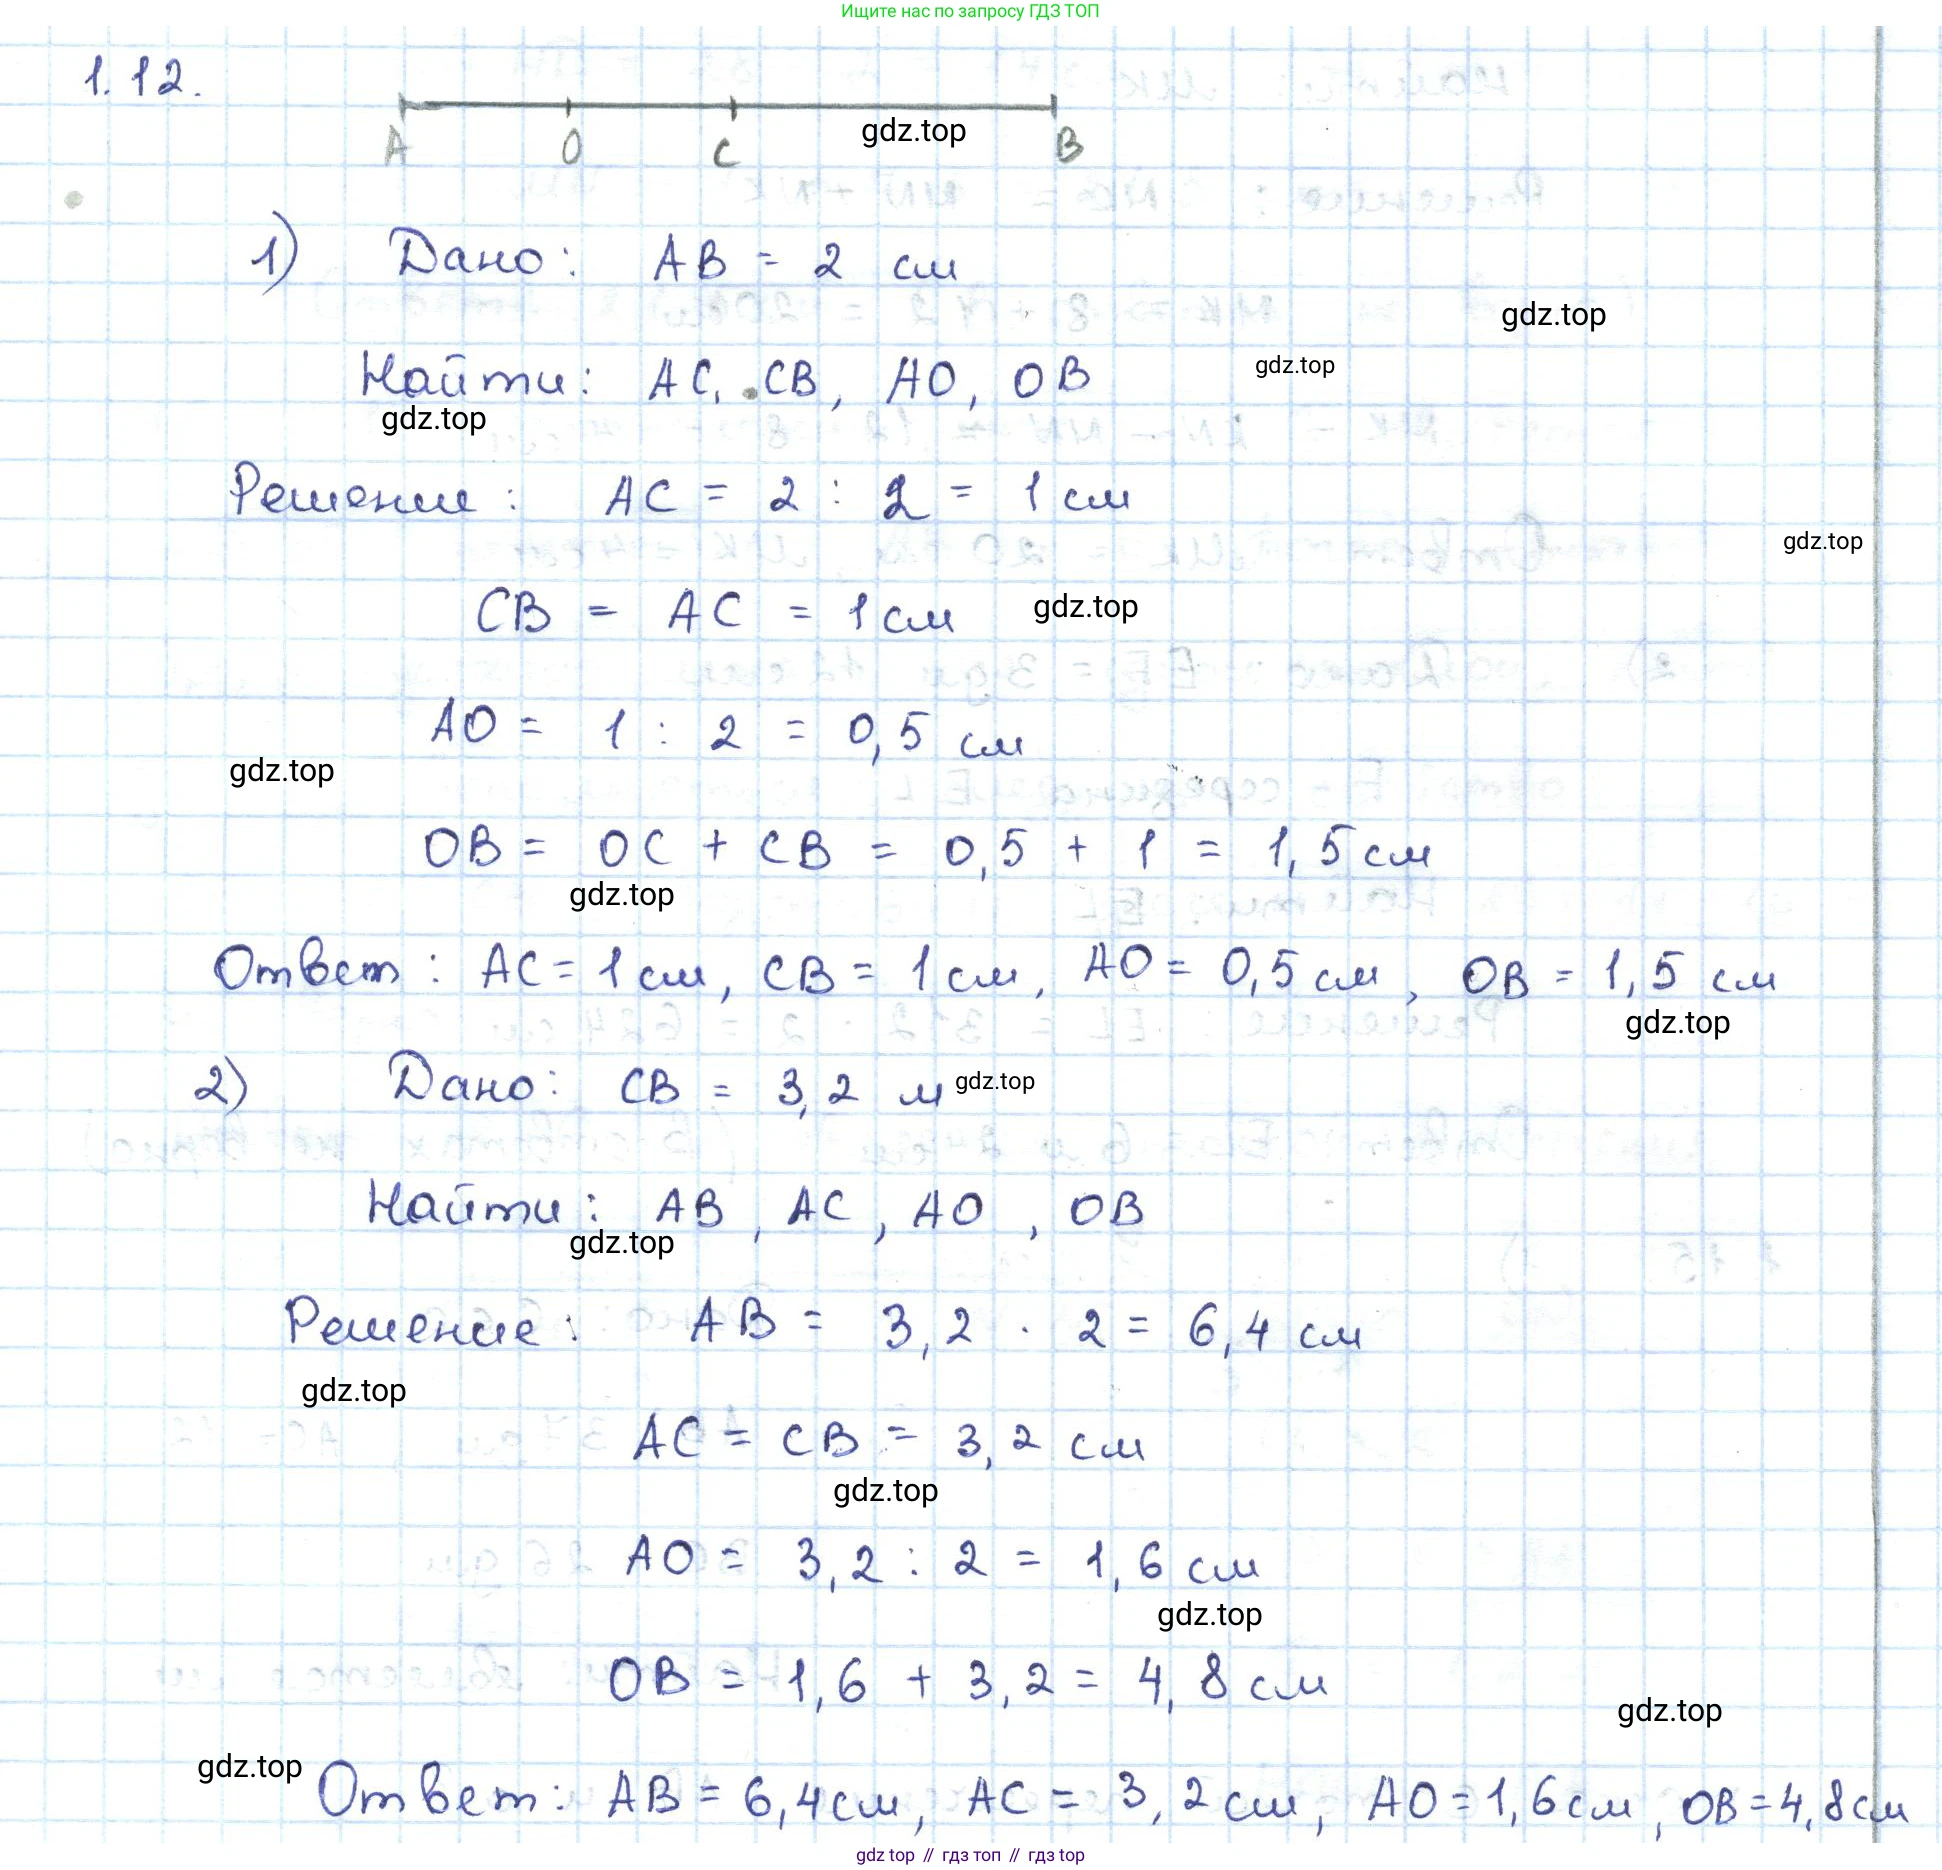 Ищите нас по запросу ГДЗ ТОП
1.12.
A O C B
gdz.top
1) Дано: AB = 2 см
gdz.top
Найти: AC, CB, AO, OB
gdz.top
gdz.top
Решение: AC = 2 : 2 = 1 см
gdz.top
CB = AC = 1 см
gdz.top
AO = 1 : 2 = 0,5 см
gdz.top
OB = OC + CB = 0,5 + 1 = 1,5 см
gdz.top
Ответ: AC = 1 см, CB = 1 см, AO = 0,5 см, OB = 1,5 см
gdz.top
2) Дано: CB = 3,2 м
gdz.top
Найти: AB, AC, AO, OB
gdz.top
Решение: AB = 3,2 · 2 = 6,4 см
gdz.top
AC = CB = 3,2 см
gdz.top
AO = 3,2 : 2 = 1,6 см
gdz.top
OB = 1,6 + 3,2 = 4,8 см
gdz.top
gdz.top
Ответ: AB = 6,4 см, AC = 3,2 см, AO = 1,6 см, OB = 4,8 см
gdz top // гдз топ // гдз top